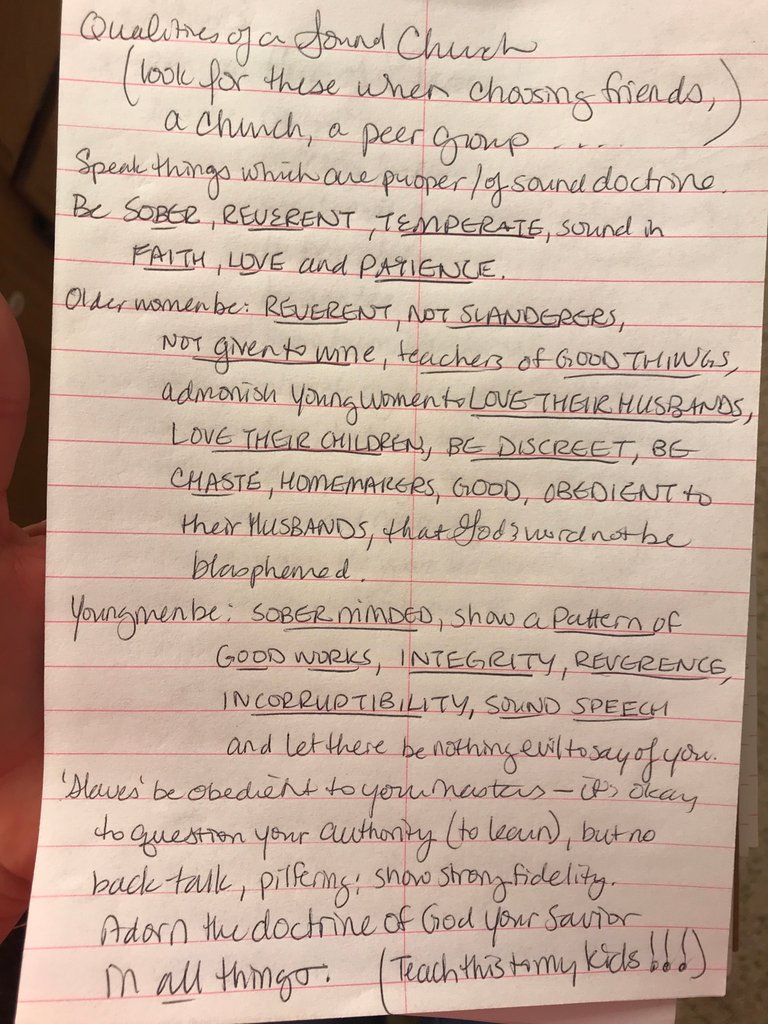 Qualities of a Sound Church
(look for these when choosing friends,
a church, a peer group .....)
Speak things which are proper/of sound doctrine.
Be SOBER, REVERENT, TEMPERATE, sound in
FAITH, LOVE and PATIENCE.
Older women be: REVERENT, NOT SLANDERERS,
NOT given to wine, teachers of GOOD THINGS,
admonish young women to LOVE THEIR HUSBANDS,
LOVE THEIR CHILDREN, BE DISCREET, BE
CHASTE, HOMEMAKERS, GOOD, OBEDIENT to
their HUSBANDS, that God's word not be
blasphemed.
Young men be: SOBER MINDED, show a pattern of
GOOD WORKS, INTEGRITY, REVERENCE,
INCORRUPTIBILITY, SOUND SPEECH
and let there be nothing evil to say of you.
'Slaves' be obedient to your masters – it's okay
to question your authority (to learn), but no
back talk, pilfering; show strong fidelity.
Adorn the doctrine of God your Savior
in all things. (Teach this to my kids!!!)